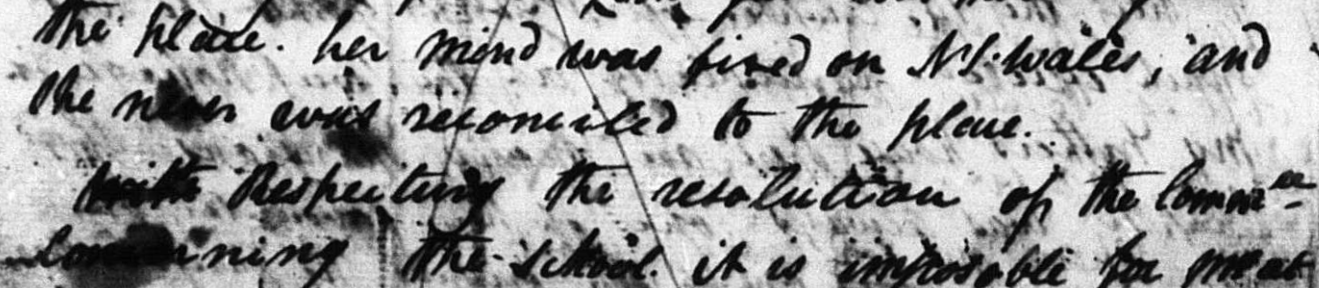 the place. her mind was fixed on N.S. wales, and
she never was reconciled to the place.
Respecting the resolution of the Comm^ee
Concerning the School. it is impossible for me at